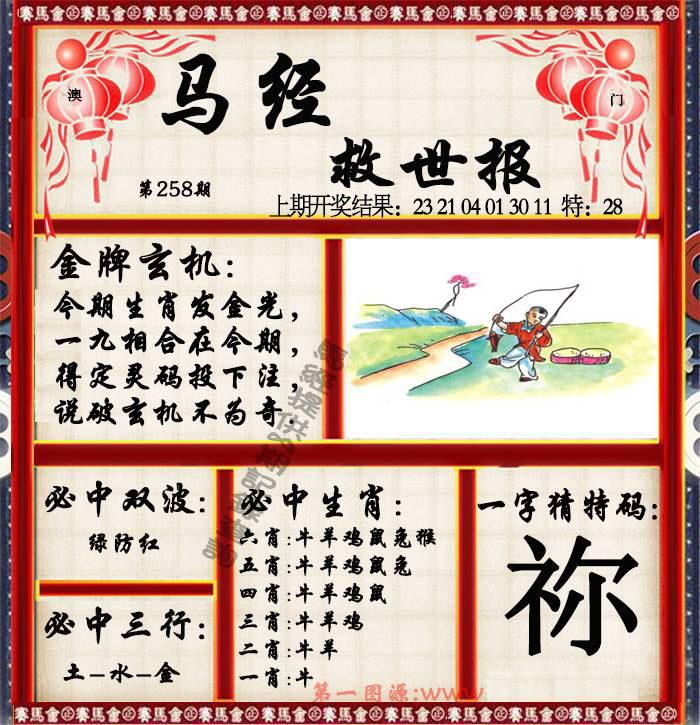 賽馬會賽馬會賽馬會賽馬會賽馬會
澳
门
马经
救世报
第258期
上期开奖结果：23 21 04 01 30 11 特：28
金牌玄机：
今期生肖发金光，
一九相合在今期，
得定灵码投下注，
说破玄机不为奇.
必中双波：
绿防红
必中三行：
土–水–金
必中生肖：
六肖:牛羊鸡鼠兔猴
五肖:牛羊鸡鼠兔
四肖:牛羊鸡鼠
三肖:牛羊鸡
二肖:牛羊
一肖:牛
一字猜特码：
祢
第一图源:www